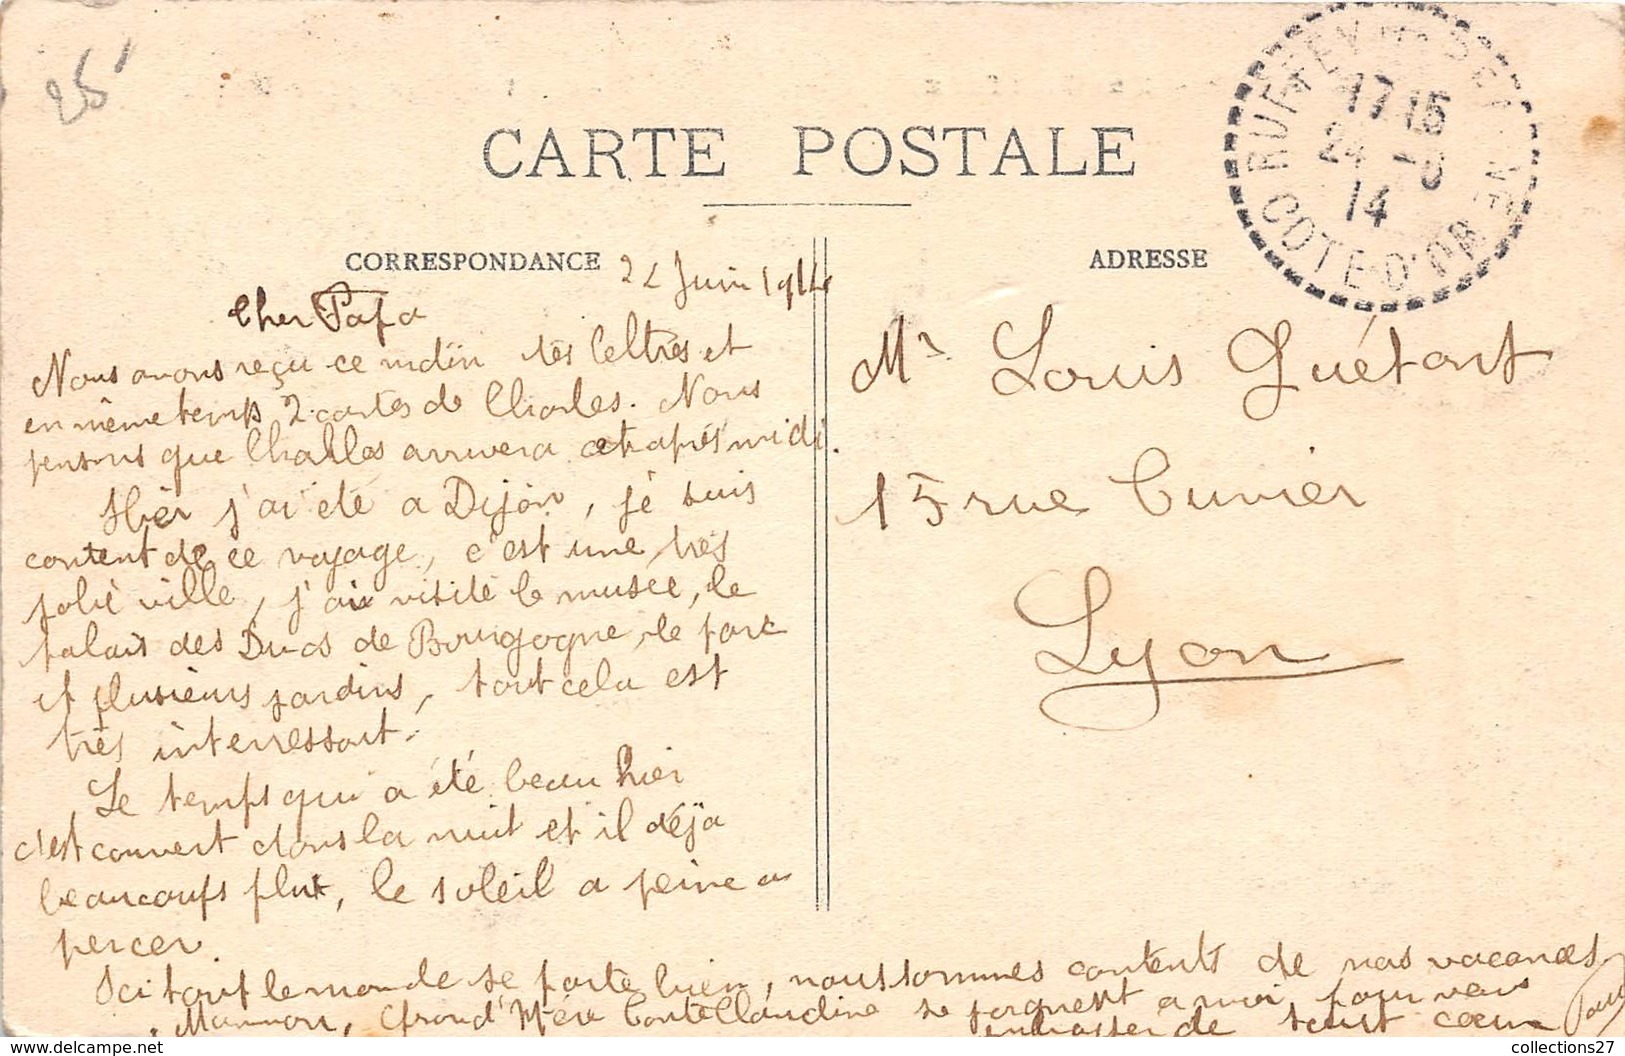 25
CARTE POSTALE
RUFFEY
COTE-D'OR
17 15
24 -6
14
CORRESPONDANCE
ADRESSE
24 Juin 1914
Cher Papa
Nous avons reçu ce matin tes lettres et
en même temps 2 cartes de Charles. Nous
pensons que Charles arrivera cet après midi.
Hier j'ai été a Dijon, je suis
content de ce voyage, c'est une très
jolie ville, j'ai visité le musée, le
palais des Ducs de Bourgogne, le parc
et plusieurs jardins, tout cela est
très interressant.
Le temps qui a été beau hier
c'est couvert dans la nuit et il déja
beaucoups plut, le soleil a peine a
percer.
Ici tout le monde se porte bien, nous sommes contents de nos vacances
Maman, Grand' Mère Tante Claudine se joignent a moi pour vous
embrasser de tout cœur Paul
Mr Louis Guétant
15 rue Cuvier
Lyon
collections27